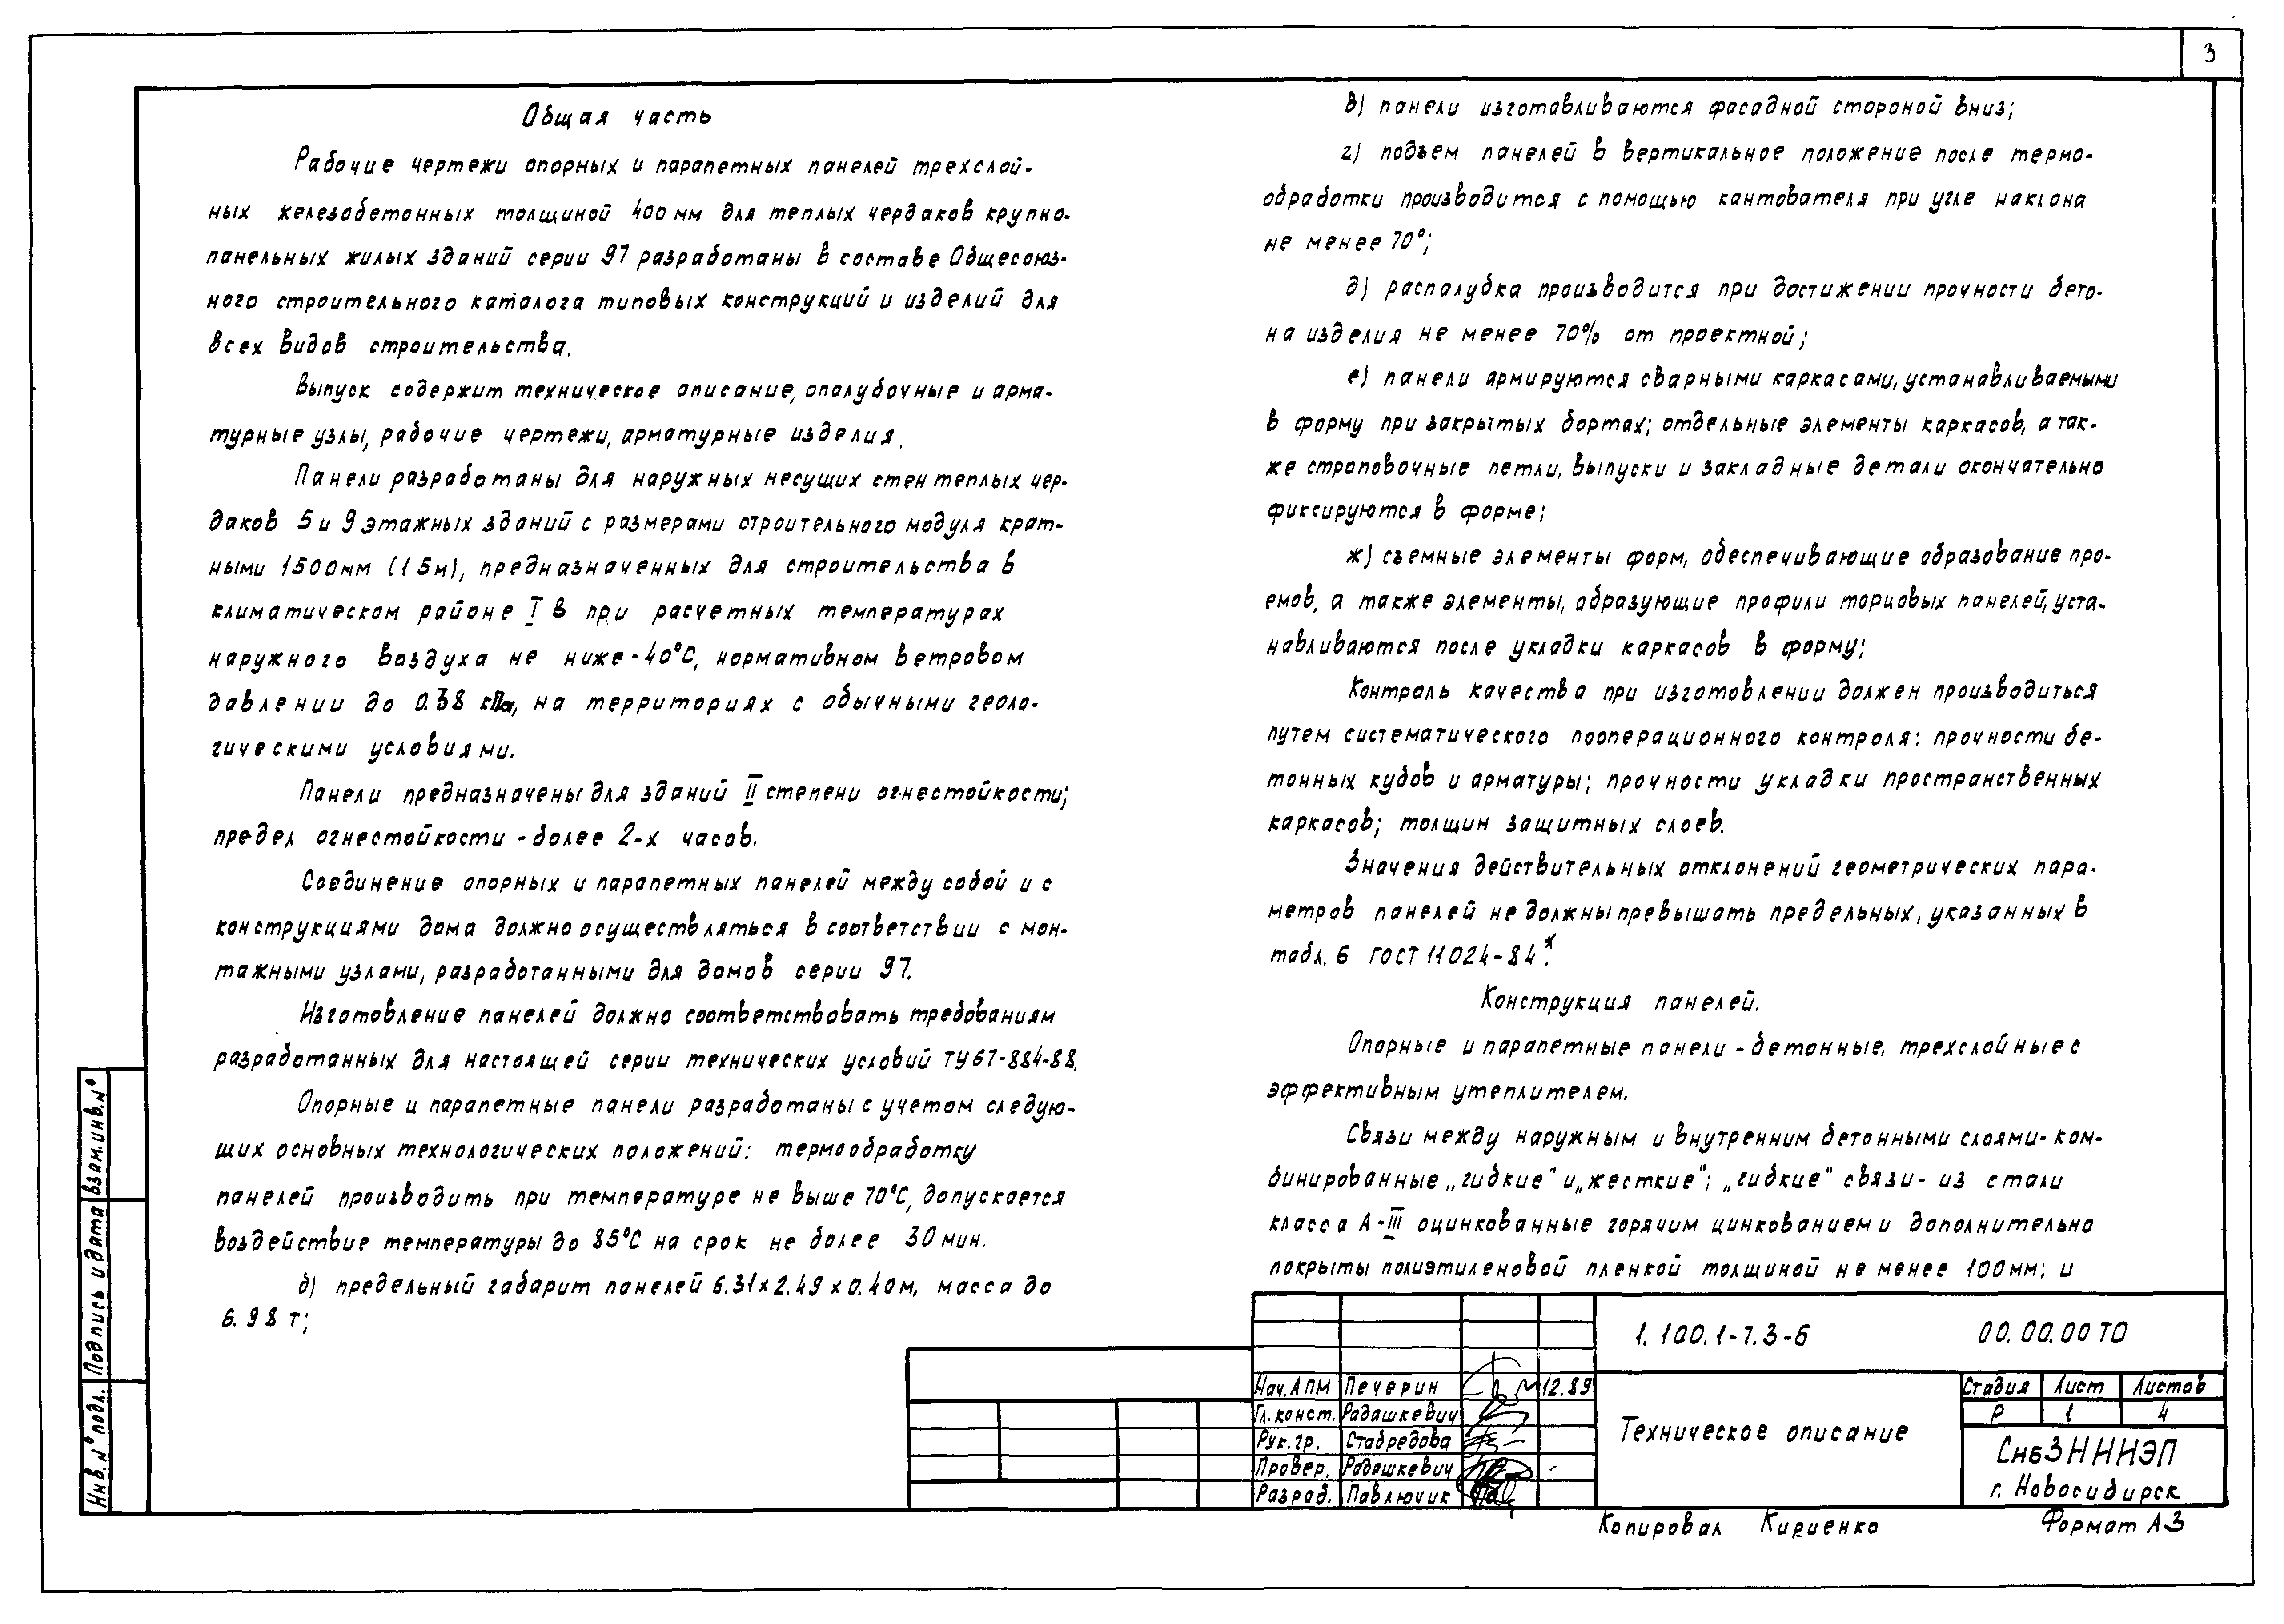 3
Общая часть
Рабочие чертежи опорных и парапетных панелей трехслой-
ных железобетонных толщиной 400 мм для теплых чердаков крупно-
панельных жилых зданий серии 97 разработаны в составе Общесоюз-
ного строительного каталога типовых конструкций и изделий для
всех видов строительства.
Выпуск содержит техническое описание, опалубочные и арма-
турные узлы, рабочие чертежи, арматурные изделия.
Панели разработаны для наружных несущих стен теплых чер-
даков 5 и 9 этажных зданий с размерами строительного модуля крат-
ными 1500мм (1 5м), предназначенных для строительства в
климатическом районе I В при расчетных температурах
наружного воздуха не ниже -40°С, нормативном ветровом
давлении до 0.38 кПа, на территориях с обычными геоло-
гическими условиями.
Панели предназначены для зданий II степени огнестойкости;
предел огнестойкости - более 2-х часов.
Соединение опорных и парапетных панелей между собой и с
конструкциями дома должно осуществляться в соответствии с мон-
тажными узлами, разработанными для домов серии 97.
Изготовление панелей должно соответствовать требованиям
разработанных для настоящей серии технических условий ТУ67-884-88.
Опорные и парапетные панели разработаны с учетом следую-
щих основных технологических положений: термообработку
панелей производить при температуре не выше 70°С, допускается
воздействие температуры до 85°С на срок не более 30 мин.
б) предельный габарит панелей 6.31×2.49×0.40м, масса до
6.98 т;
в) панели изготавливаются фасадной стороной вниз;
г) подъем панелей в вертикальное положение после термо-
обработки производится с помощью кантователя при угле наклона
не менее 70°;
д) распалубка производится при достижении прочности бето-
на изделия не менее 70% от проектной;
е) панели армируются сварными каркасами, устанавливаемыми
в форму при закрытых бортах; отдельные элементы каркасов, а так-
же строповочные петли, выпуски и закладные детали окончательно
фиксируются в форме;
ж) съемные элементы форм, обеспечивающие образование про-
емов, а также элементы, образующие профили торцовых панелей, уста-
навливаются после укладки каркасов в форму;
Контроль качества при изготовлении должен производиться
путем систематического пооперационного контроля: прочности бе-
тонных кубов и арматуры; прочности укладки пространственных
каркасов; толщин защитных слоев.
Значения действительных отклонений геометрических пара-
метров панелей не должны превышать предельных, указанных в
табл. 6 ГОСТ 11024-84*.
Конструкция панелей.
Опорные и парапетные панели - бетонные, трехслойные с
эффективным утеплителем.
Связи между наружным и внутренним бетонными слоями - ком-
бинированные „гибкие" и „жесткие"; „гибкие" связи - из стали
класса А-III оцинкованные горячим цинкованием и дополнительно
покрыты полиэтиленовой пленкой толщиной не менее 100мм; и
1.100.1-7.3-6 00.00.00 ТО
Нач. АПМ Печерин 12.89
Гл. конст. Радашкевич
Рук. гр. Стабредова
Провер. Радашкевич
Разраб. Павлючик
Техническое описание
Стадия Лист Листов
Р 1 4
СибЗНИИЭП
г. Новосибирск
Копировал Кириенко Формат А3
Инв. № подл. Подпись и дата Взам. инв. №